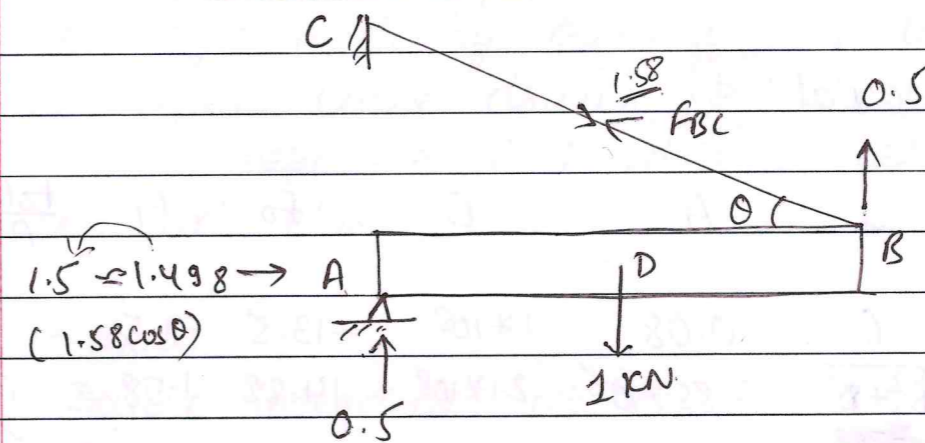 C
1.58
0.5
FBC
θ
B
1.5 ≃ 1.498 → A
D
(1.58cosθ)
1KN
0.5